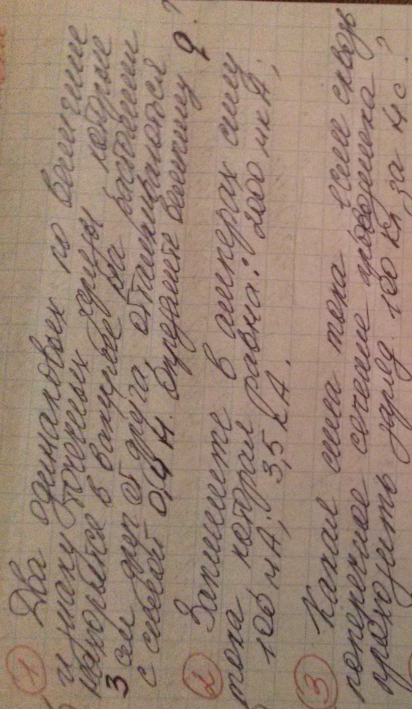 ① Два одинаковых по величине
и знаку точечных заряда которые
находятся в вакууме на расстоянии
3 см друг от друга, отталкиваются
с силой 0,4 Н. Определите величину q?
② Запишите в амперах силу
тока которая равна: 2000 мкА;
100 мА; 3,5 кА.
③ Какая сила тока если сквозь
поперечное сечение проводника
проходить заряд 100 Кл за 4 с.?